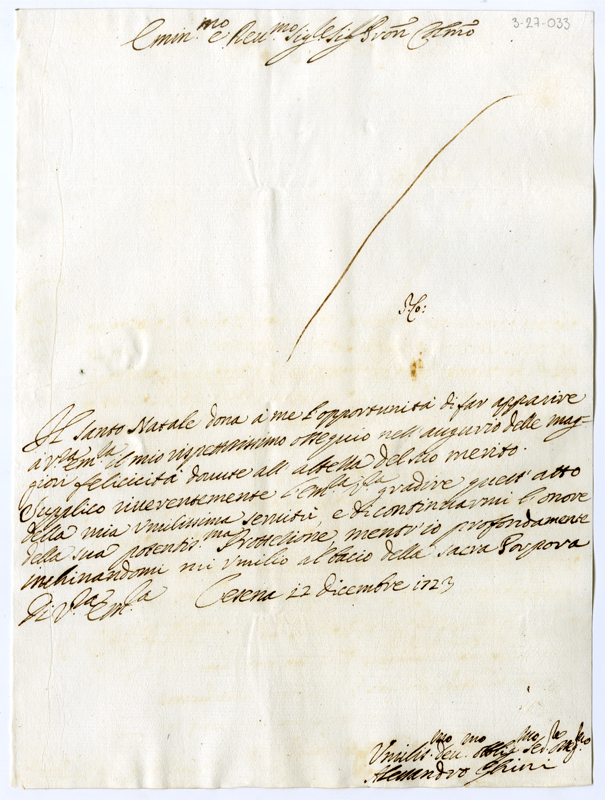 3-27-033
Emin.mo e Reu.mo Sig.re Sig.re Pron Colmo
Il Santo Natale dona à me l'opportunità di far apparire
à V.ra Em.la il mio rispettosissimo ossequio nell'augurio delle mag-
giori felicità dovute all'altezza del suo merito.
Supplico riverentemente l'Em.la V.ra gradire quest'atto
della mia Umilissima servitù, e di continuarmi l'onore
della sua potentis.ma Protezione, mentr'io profondamente
inchinandomi mi Umilio al bacio della Sacra Porpora
Di V.ra Em.la Cesena 22 dicembre 1723
Umilis.mo deu.mo obl.mo
Alessandro Ghini